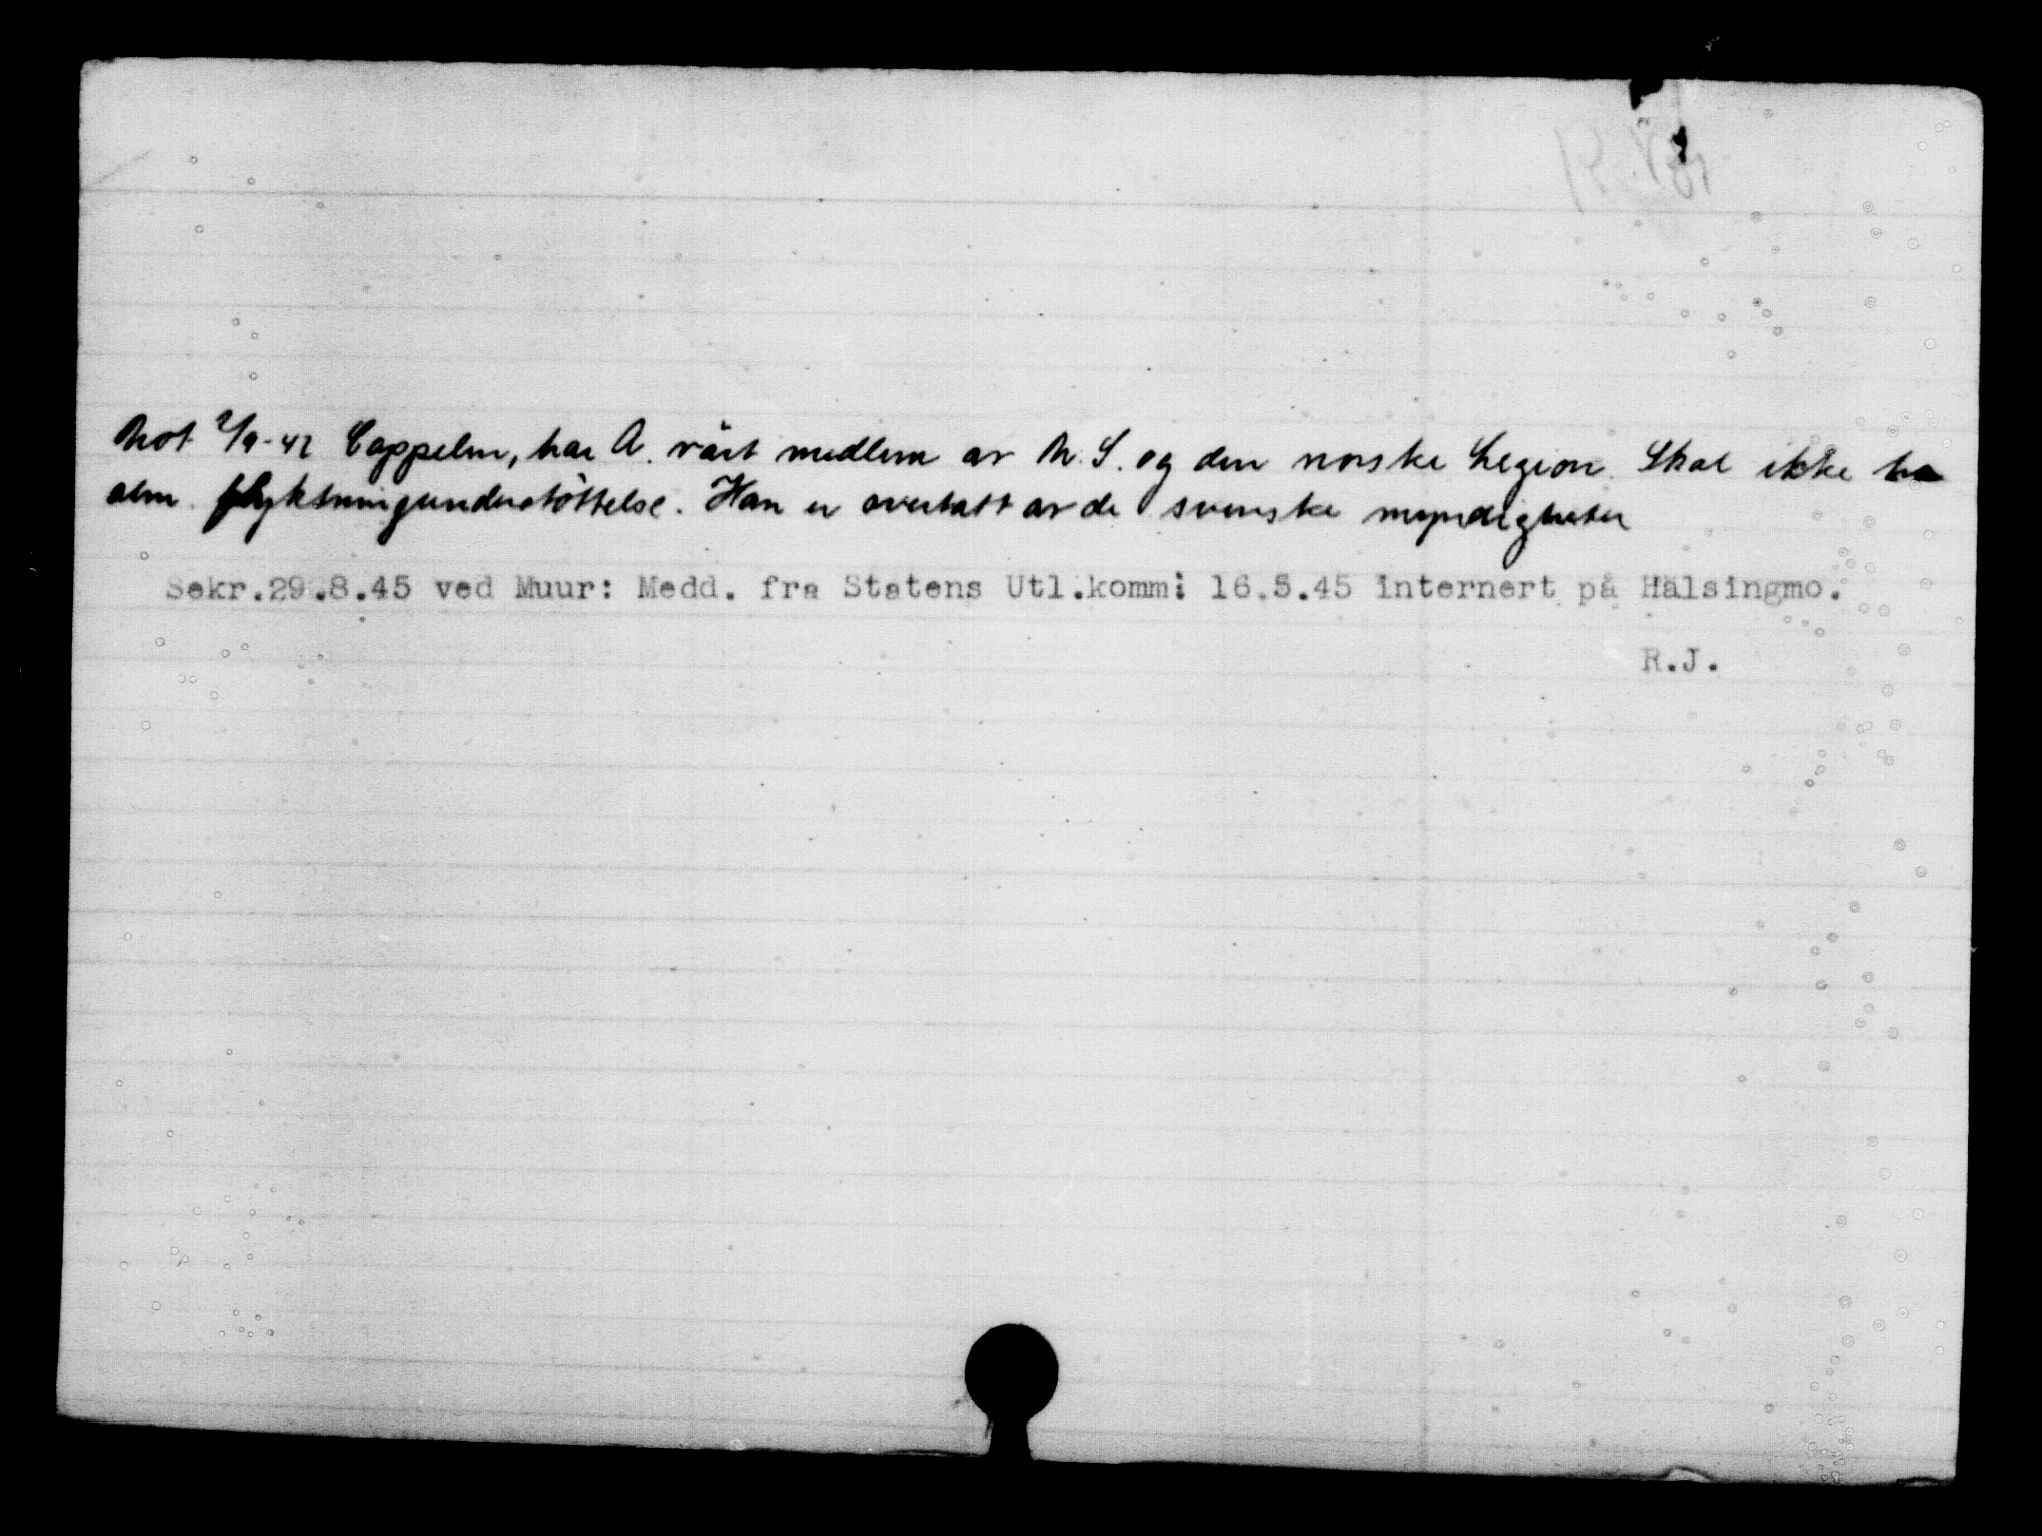 Not 2/9-42 Cappelen, har A. vårt medlem av N.S. og den norske Legion. Skal ikke ha
alm. flyktningunderstöttelse. Han er overtatt av de svenske myndigheter
Sekr.29.8.45 ved Muur: Medd. fra Statens Utl.komm: 16.5.45 internert på Hälsingmo.
R.J.